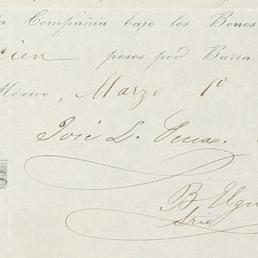 Compañia bajo los Bonos
cien pesos por Barra
México, Marzo 1º
José L.
B. Elgu
Srio